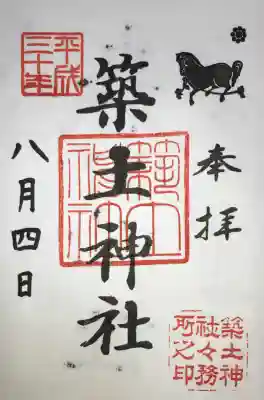 奉拝
築土神社
平成
三十年
八月四日
築土神
社々務
所之印